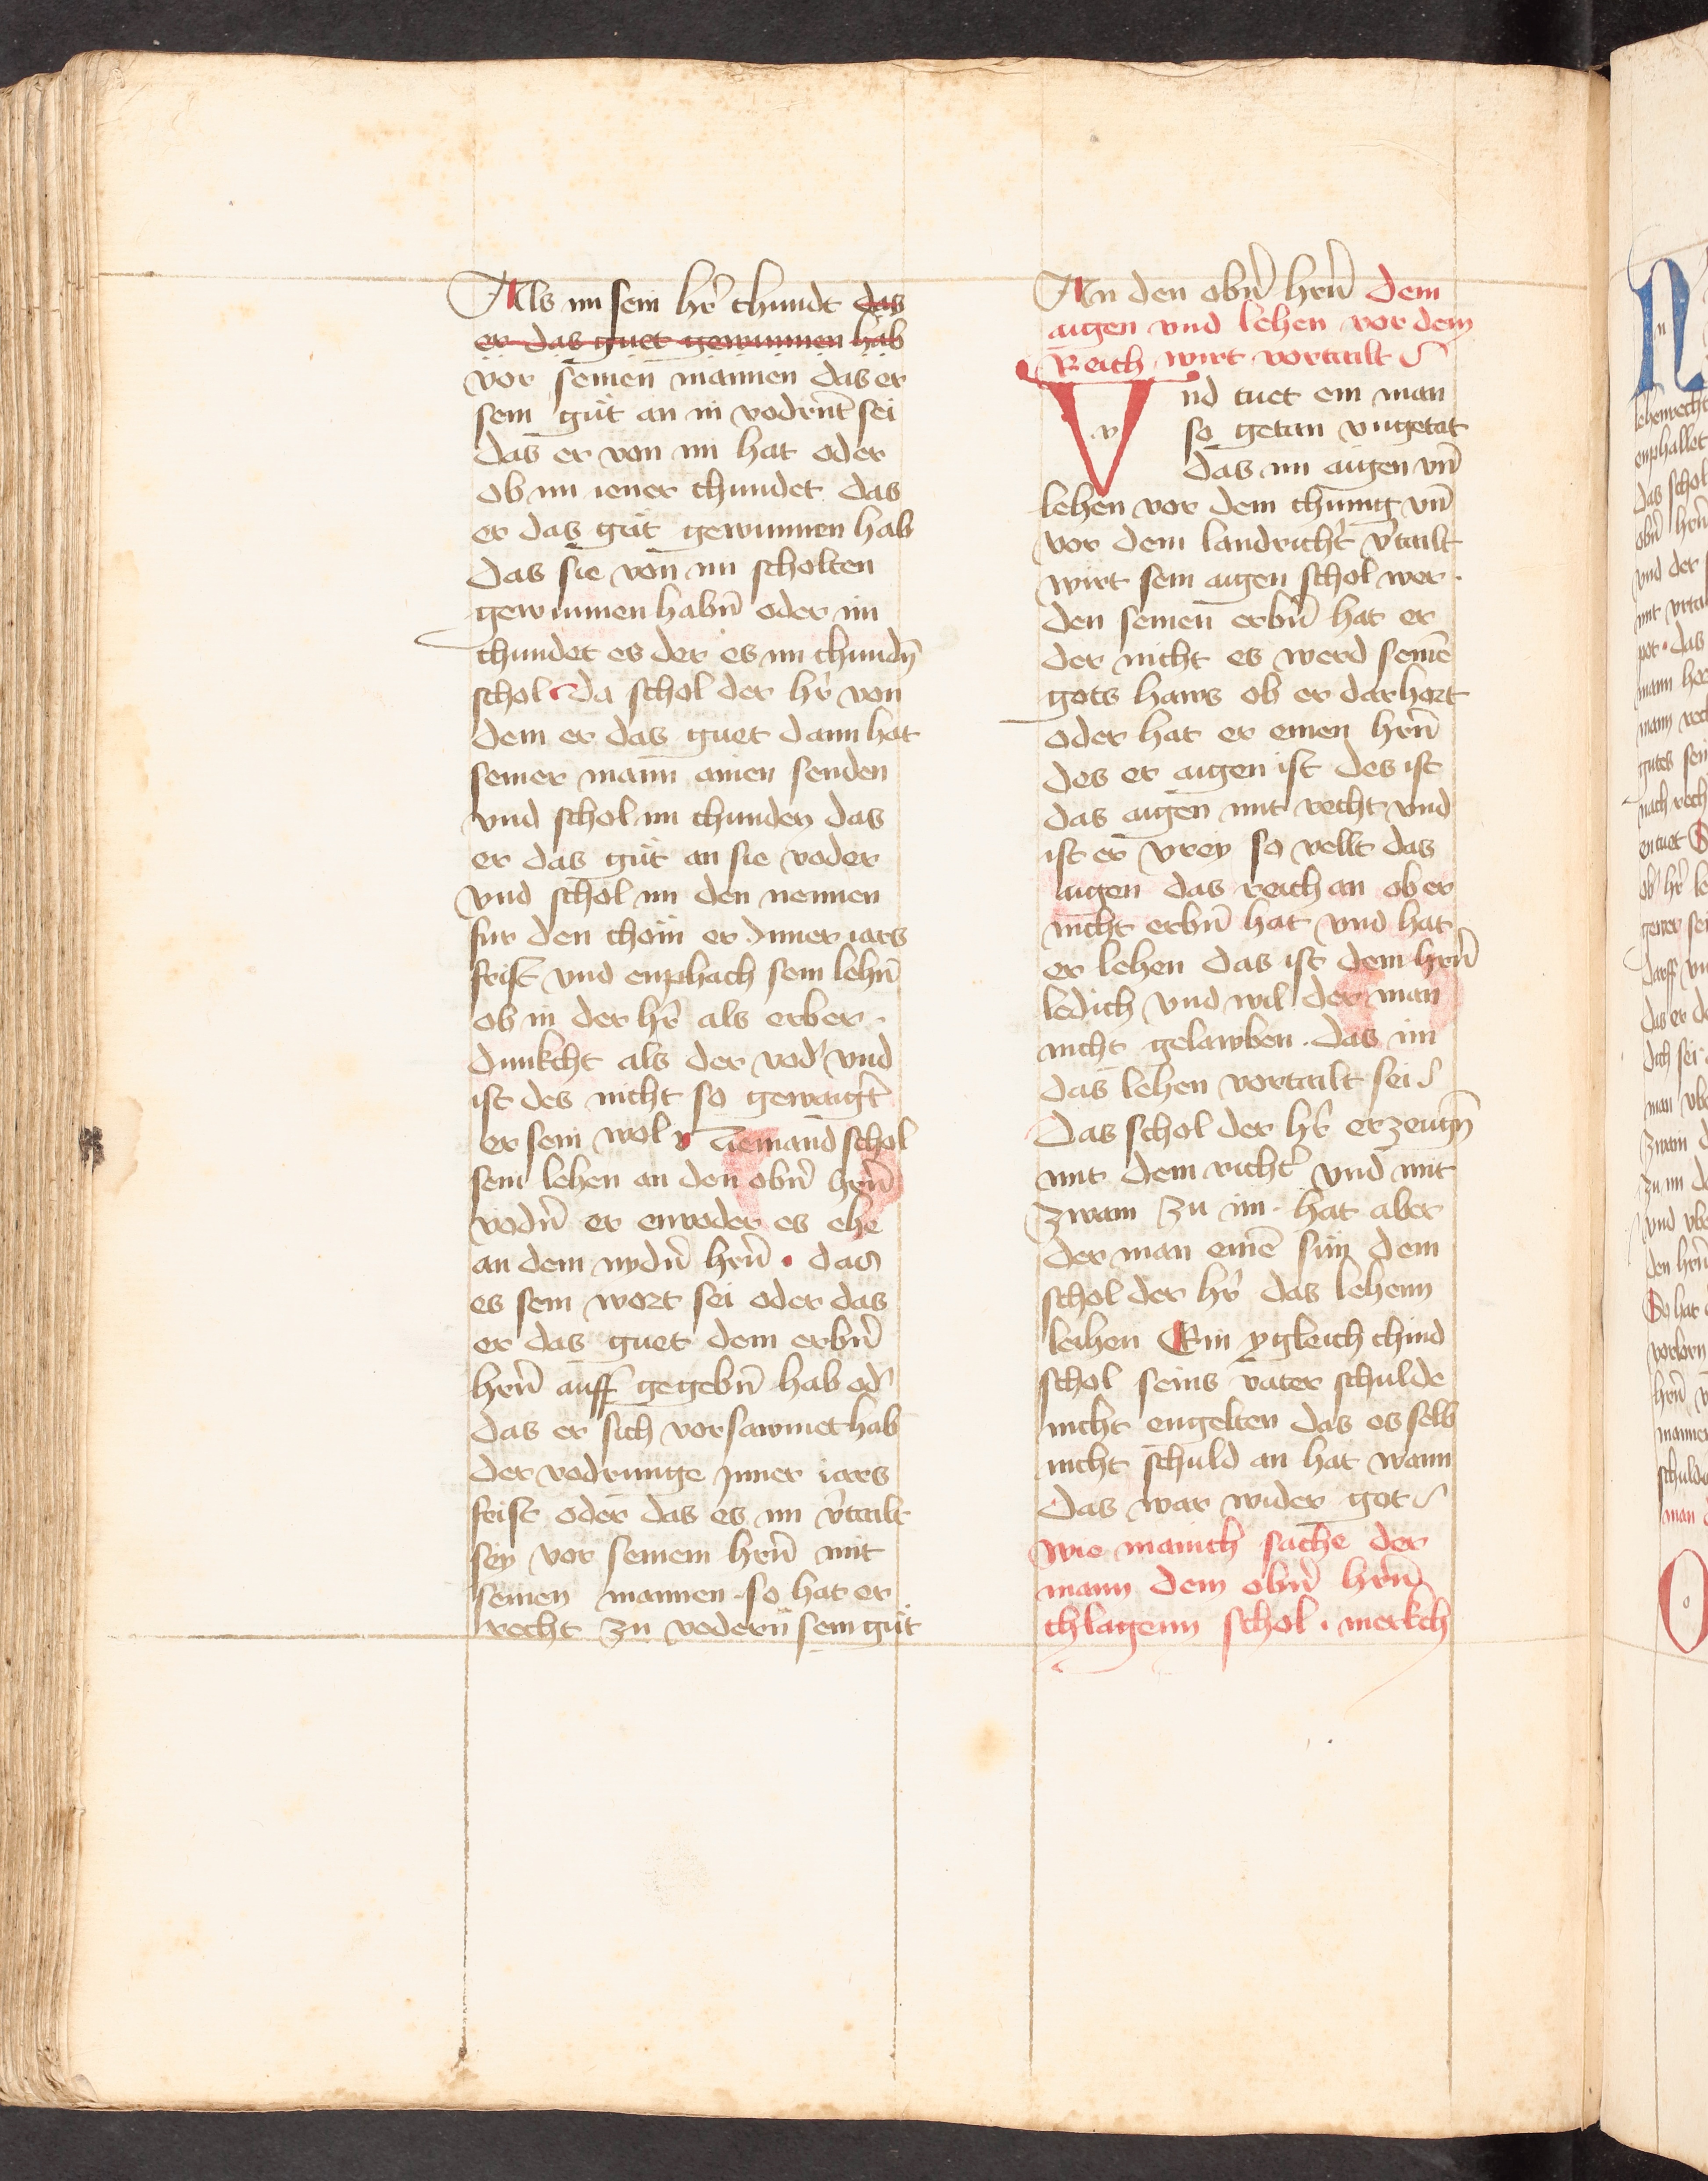 Als im sein hr̄ chundt das
er das guet gewunnen hab
vor seinen mannen das er
sein gut an in vodrūt sei
das er von im hat oder
ob im iener chundet das
er das gut gewunnen hab
das sie von im scholten
gewunnen habn̄ oder im
chundet es der es im chundn̄
schol Da schol der hr̄ von
dem er das guet dann hat
seiner mann ainen senden
vnd schol im chunden das
er das gut an sie voder
vnd schol im den nennen
fur den chöm er Inner iars
frist vnd enphach sein lehn̄
ob in der hr̄ als erber
dunkcht als der vod' vnd
ist des nicht so gewaigr̄t
er sein wol Niemand schol
sein lehen an den obn̄ hrn̄
vodn̄ er envoder es ehe
an dem nydn̄ hrn̄ . das
es sein wort sei oder das
er das guet dem erbn̄
hrn̄ auff gegebn̄ hab od'
das er sich vorsawmet hab
der vodrunge Inner iars
frist oder das es im v'tailt
sey vor seinem hrn̄ mit
seinen mannen . so hat er
recht zu vodern sein gut
An den obn̄ hrn̄ dem
aigen vnd lehen vor dem
Reich wirt vortailt
Vnd tuet ein man
so getan vngetat
das im aigen vn̄
lehen vor dem chunig vn̄
vor dem landricht' v'tailt
wirt sein aigen schol wer
den seinen erbn̄ hat er
der nicht es werd seinē
gots haws ob er dar hort
oder hat er einen hrn̄
des er aigen ist des ist
das aigen mit recht vnd
ist er vrey so vellt das
aigen das reich an ob er
nicht erbn̄ hat vnd hat
er lehen das ist dem hrn̄
ledich vnd wil der man
nicht gelawben . das im
das lehen vortailt sei
Das schol der hr̄ erzeugn̄
mit dem richt' vnd mit
zwain zu im . hat aber
der man einē sun dem
schol der hr̄ das lehenn
leihen Ein ygleich chind
schol seins vater schulde
nicht engelten das es selb
nicht schuld an hat wann
das war wider got
Wie manich sache der
mann dem obn̄ hrn̄
chlagenn schol . merkch